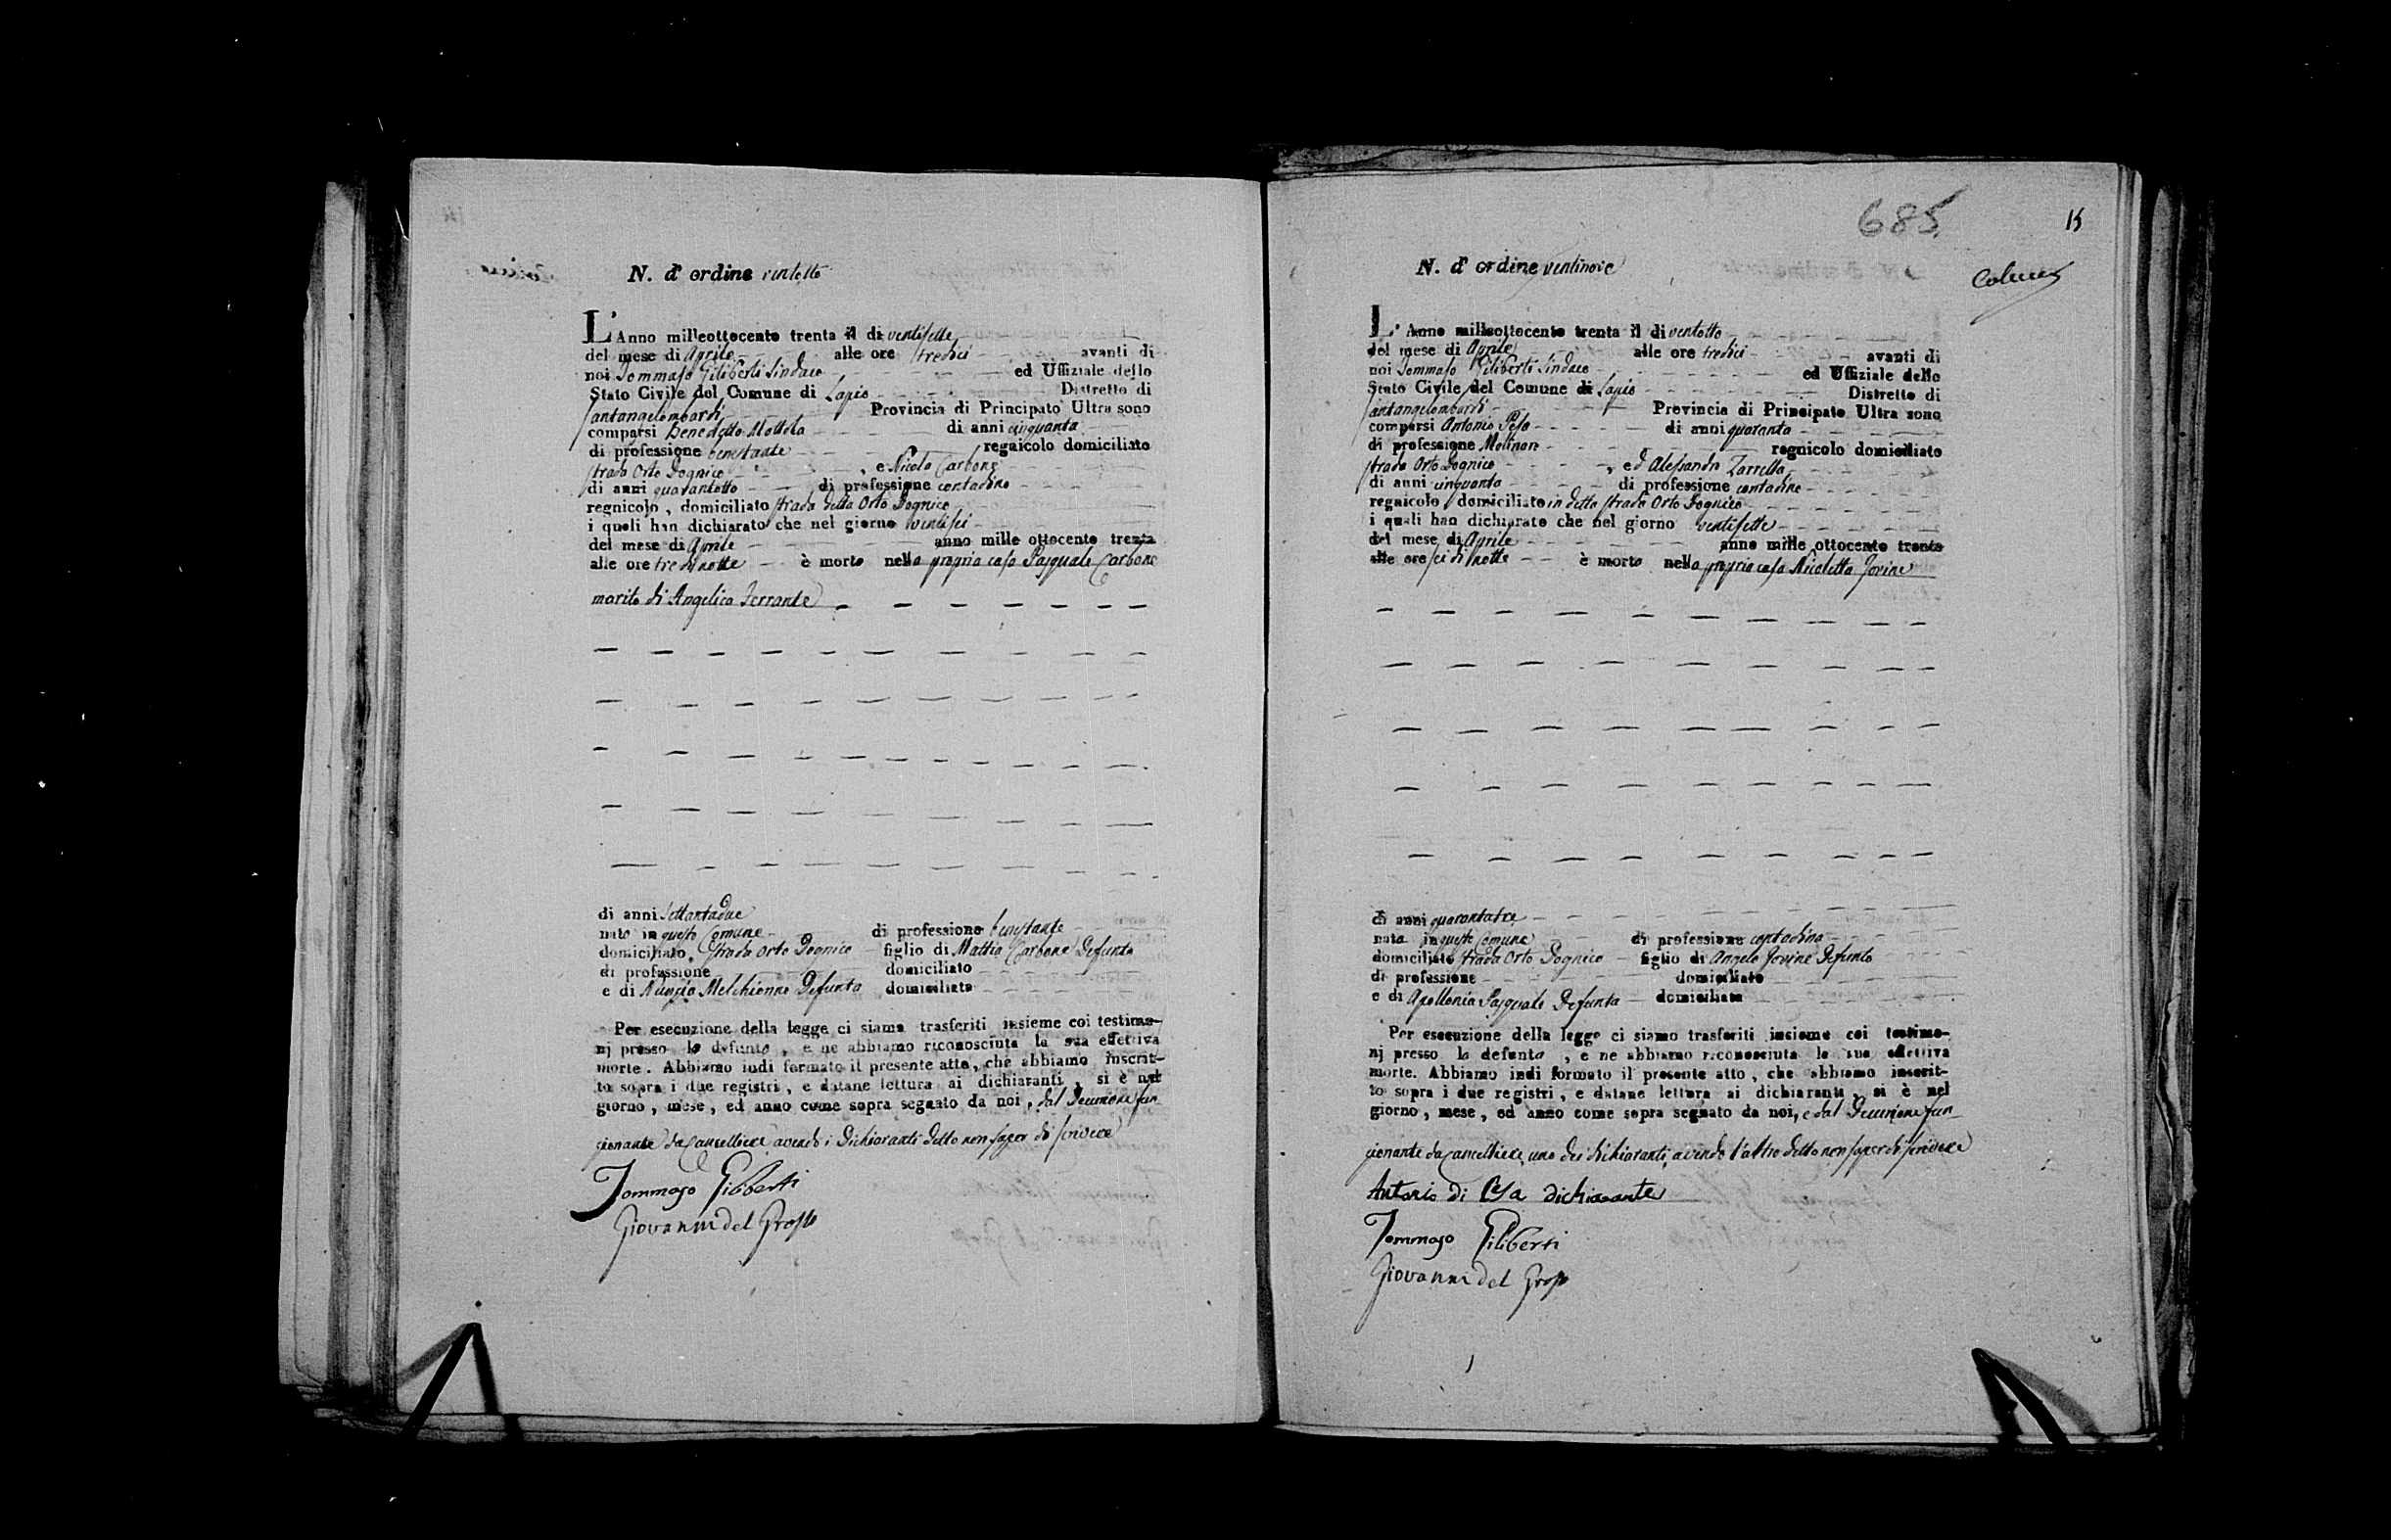 N. d' ordine ventotto
L'Anno milleottocento trenta il dì ventisette
del mese di Aprile alle ore tredici avanti di
noi Tommaso Giliberti Sindaco ed Uffiziale dello
Stato Civile del Comune di Lapio Distretto di
Santangelombardi Provincia di Principato Ultra sono
comparsi Benedetto Mottola di anni cinquanta
di professione benestante regnicolo domiciliato
strada Orto Dognico , e Nicola Carbone
di anni quarantotto di professione contadino
regnicolo , domiciliato strada detta Orto Dognico
i quali han dichiarato che nel giorno ventisei
del mese di Aprile anno mille ottocento trenta
alle ore tre di notte è morto nella propria casa Pasquale Carbone
marito di Angelica Ferrante
di anni settantadue
nato in questo Comune di professione benestante
domiciliato strada Orto Dognico figlio di Mattia Carbone Defunto
di professione domiciliato
e di Nunzia Melchionno Defunta domiciliata
Per esecuzione della legge ci siamo trasferiti insieme coi testimo-
nj presso lo defunto , e ne abbiamo riconosciuta la sua effettiva
morte . Abbiamo indi formato il presente atto , che abbiamo inscrit-
to sopra i due registri , e datane lettura ai dichiaranti , si è nel
giorno , mese , ed anno come sopra segnato da noi , dal Decurione fun
zionante da Cancelliere avendo i Dichiaranti detto non saper di scrivere
Tommaso Giliberti
Giovanni del Grosso
685
15
N. d' ordine ventinove
L' Anno milleottocento trenta il dì ventotto
del mese di Aprile alle ore tredici avanti di
noi Tommaso Giliberti Sindaco ed Uffiziale dello
Stato Civile del Comune di Lapio Distretto di
Santangelombardi Provincia di Principato Ultra sono
comparsi Antonio Pesa di anni quaranta
di professione Molinaro regnicolo domiciliato
strada Orto Dognico , ed Alessandro Zarrella
di anni cinquanta di professione contadino
regnicolo domiciliato in detta strada Orto Dognico
i quali han dichiarato che nel giorno ventisette
del mese di Aprile anno mille ottocento trenta
alle ore sei di notte è morto nella propria casa Nicoletta Jovine
di anni quarantatre
nata in questo Comune di professione contadina
domiciliata strada Orto Dognico figlio di Angelo Jovine Defunto
di professione domiciliato
e di Apollonia Pasquale Defunta domiciliata
Per esecuzione della legge ci siamo trasferiti insieme coi testimo-
nj presso la defunta , e ne abbiamo riconosciuta la sua effettiva
morte. Abbiamo indi formato il presente atto , che abbiamo inscrit-
to sopra i due registri , e datane lettura ai dichiaranti , si è nel
giorno , mese , ed anno come sopra segnato da noi, e dal Decurione fun
zionante da Cancelliere, uno dei dichiaranti, avendo l'altro detto non saper di scrivere
Antonio di Pesa dichiarante
Tommaso Giliberti
Giovanni del Grosso